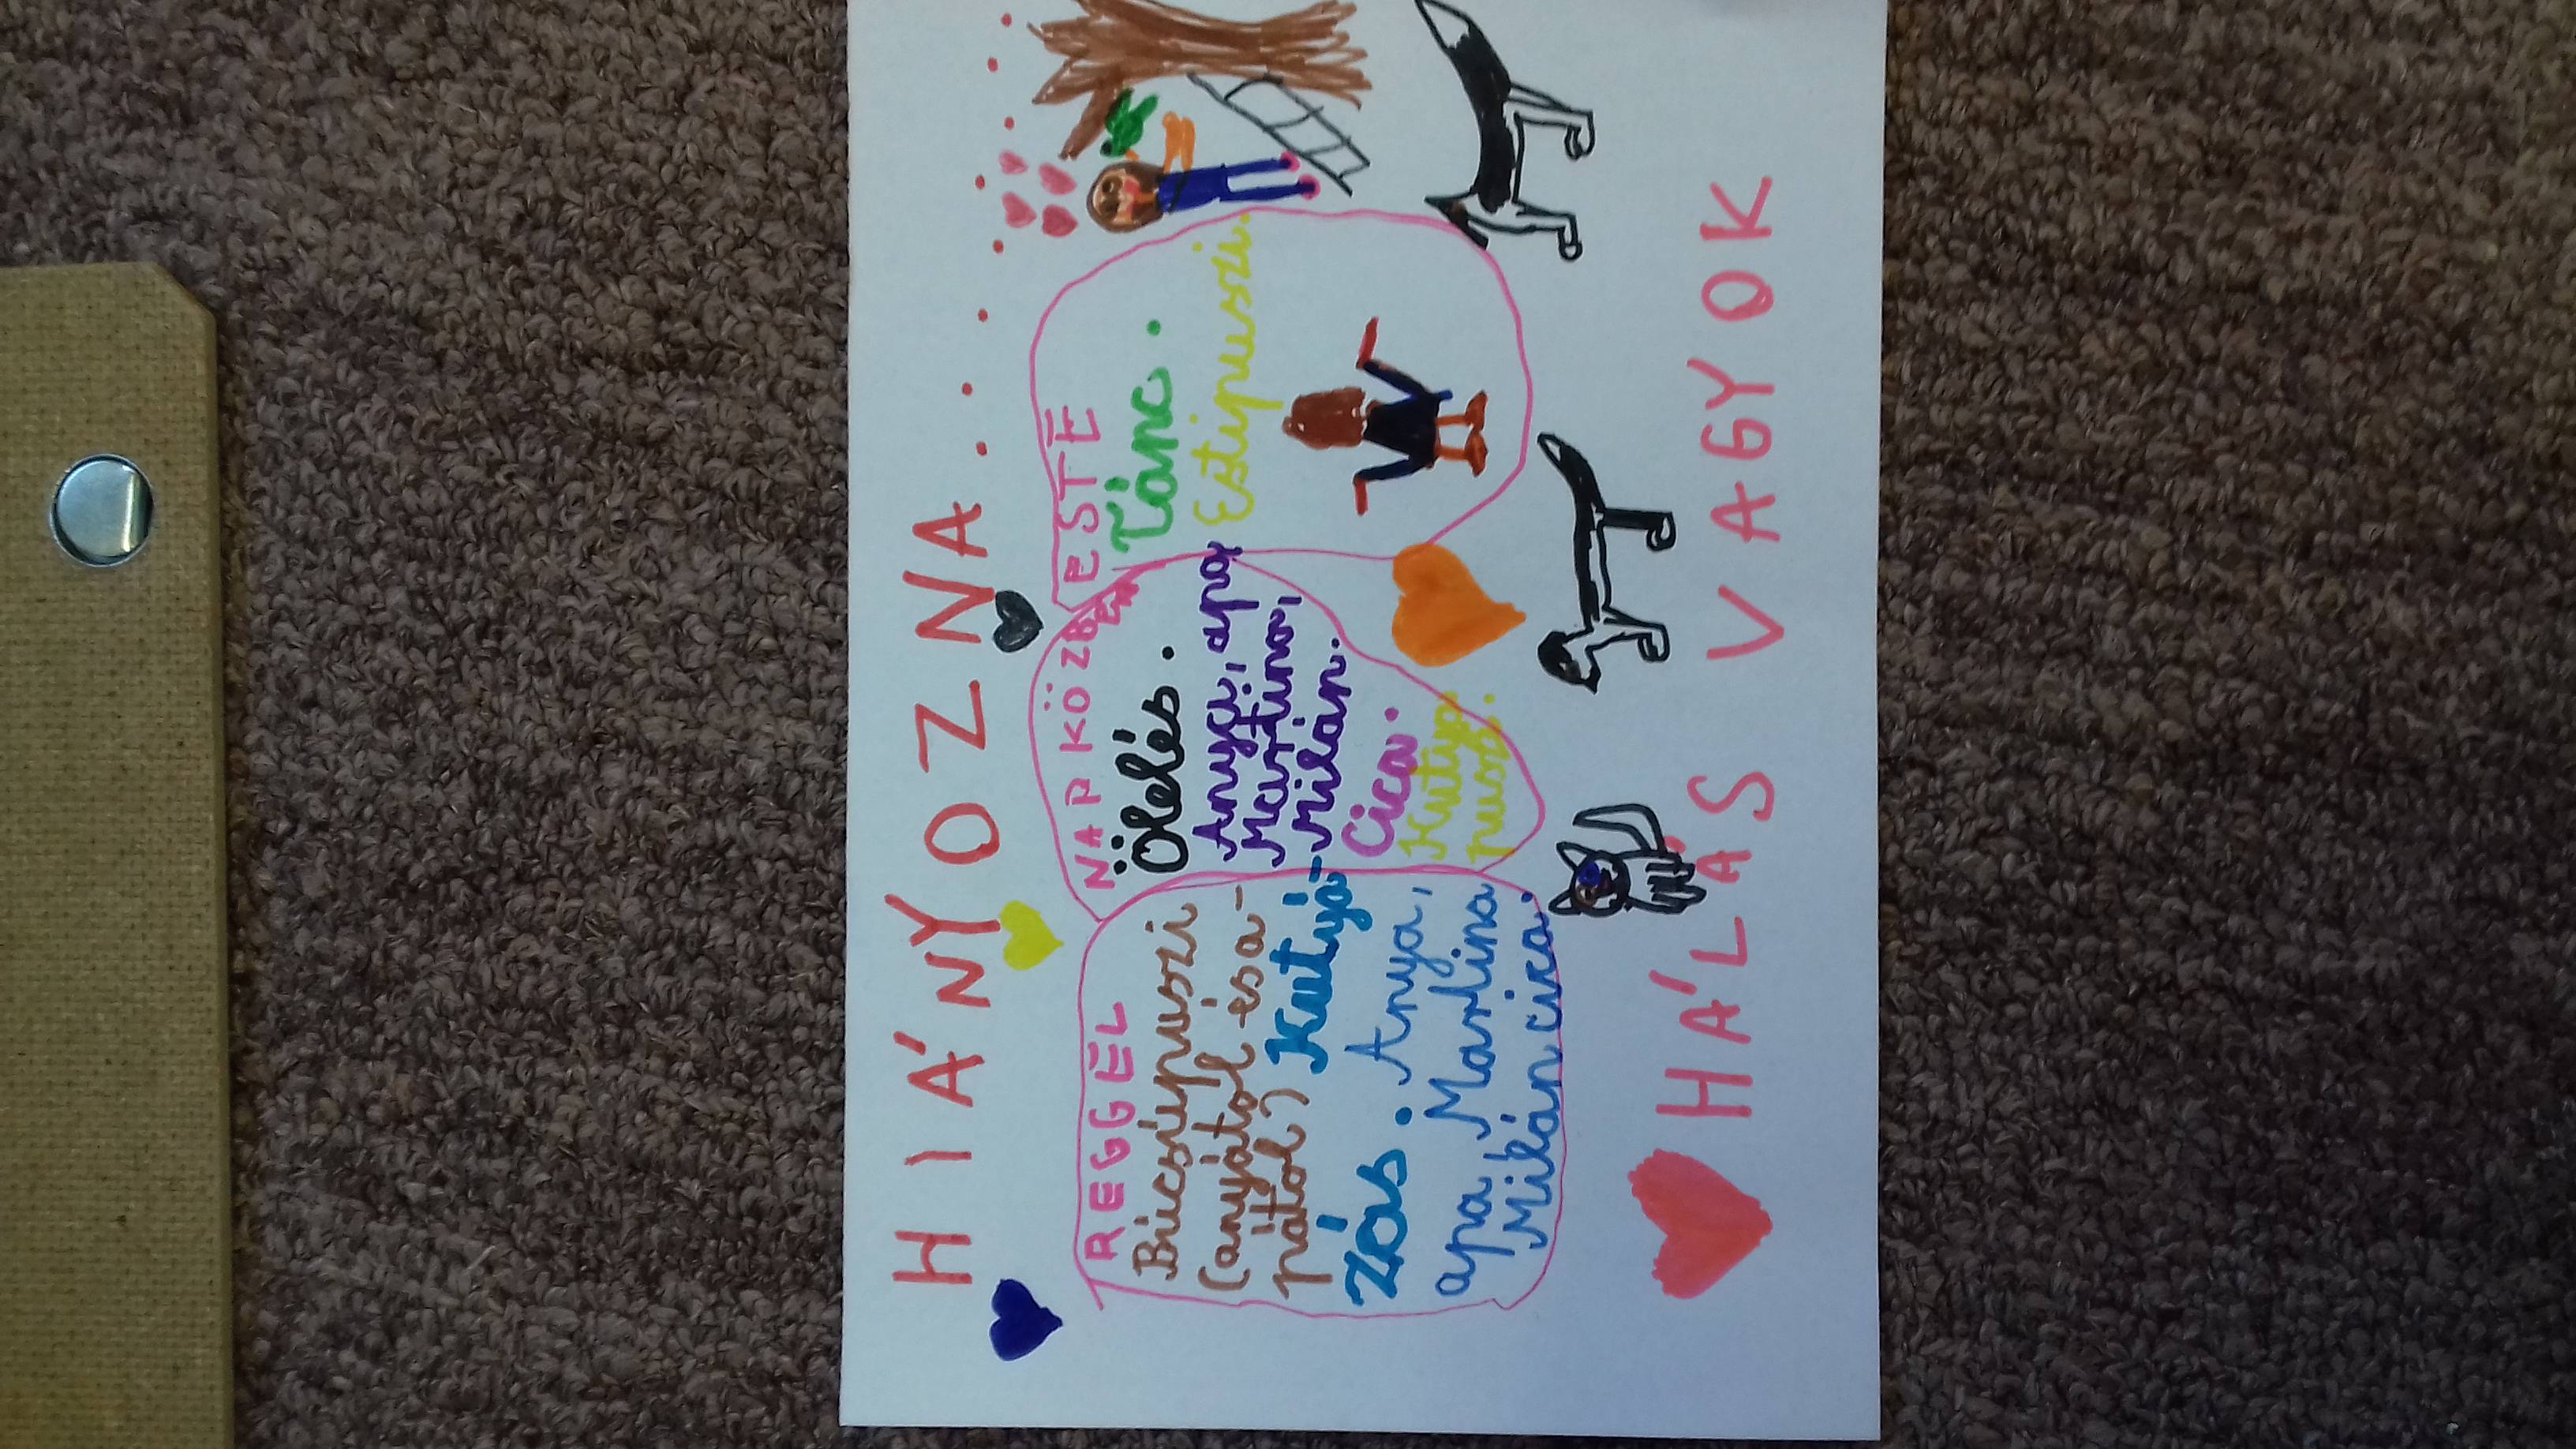 HIÁNYOZNA..........
REGGEL
Búcsúpuszi
(anyától és a-
pától) Kutyá-
zás. Anya,
apa Martina
Milán cica.
NAPKÖZBEN
Ölelés.
Anya, apa,
Martina,
Milán.
Cica.
Kutya
puszi.
ESTE
Tánc.
Estipuszi.
HÁLÁS VAGYOK